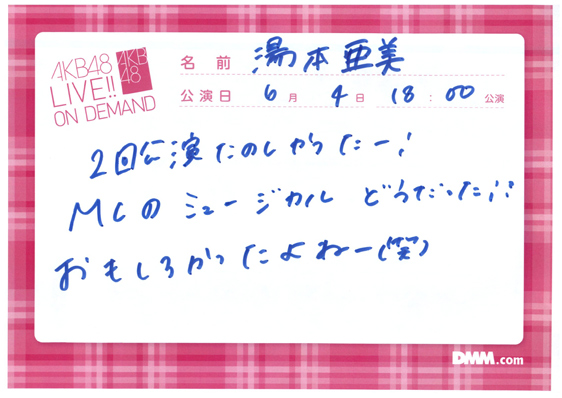 AKB48
LIVE!!
ON DEMAND
AKB
48
名前 湯本亜美
公演日 6月 4日 18:00 公演
2回公演たのしかったー!
MCのミュージカル どうだった!?
おもしろかったよねー(笑)
DMM.com